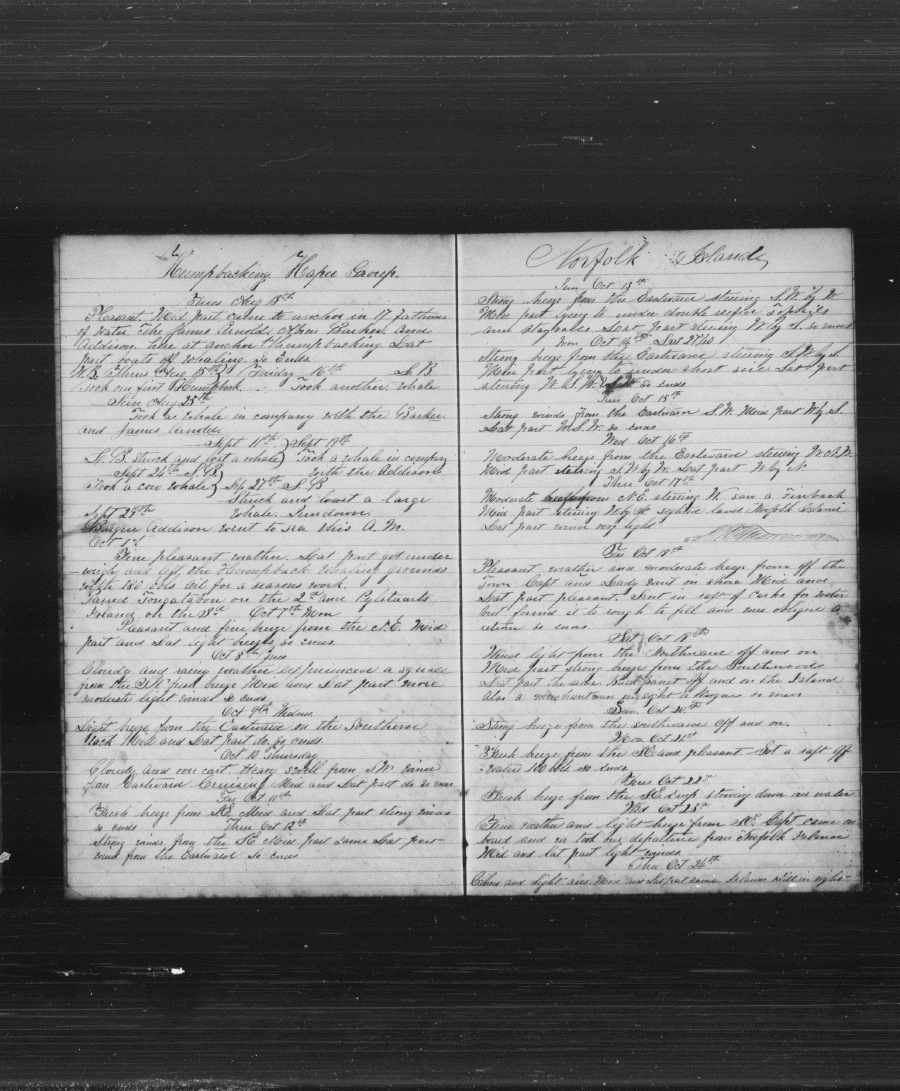 Humpbacking. Hapee Group.
Thurs Aug 15th
Pleasant Mid part came to anchor in 17 fathoms
of water The James Arnold, Barker, And
Addison here at anchor Humpbacking. Lat
part boats off whaling. So Ends
Thurs Aug 15th } Friday 16th S. B
Took our first Humpback Took another whale
Sun Aug 25th
Took a whale in company with the Barker
and James Arnold
Sept 11th } Sept 19th
S. B Struck and lost a whale } Took a whale in company
Sept 24th S B with the Addison
Took a cow whale } Sep 27th S B
Struck and lost a large
Sept 29th Whale. Sundown.
Barque Addison went to sea this A. M.
Oct 1st
Fine pleasant weather. Lat part got under
weigh and left the Humpback whaling grounds
with 150 bbls oil for a seasons work.
Passed Tongataboo on the 2nd and Pylstaarts
Island on the 3rd Oct 7th Mon
Pleasant and fine breeze from the N. E. Mid
part and Lat light breezes so ends.
Oct 8th Tues
Cloudy and rainy weather experienced a squall
from the fresh breeze Mid and Lat part more
moderate light winds so ends
Oct 9th Wednes
Light breeze from the Eastward on the Southern
tack Mid and Lat part do. so ends.
Oct 10 Thursday
Cloudy and over cast. Heavy swell from S.W. wind
from Eastward Cruising Mid and Lat part do so ends
Fri Oct 11th
Fresh breeze from SE Mid and Lat part strong winds
so ends Oct 12th
Strong winds from the SE Mid part same Lat part
wind from the Eastward So ends
Norfolk Island,
Sun Oct 13th
Strong breeze from the Eastward steering S.W. by W
Midd part lying to under double reefed Topsails
and staysails. Lat part steering W by S. so ends
Mon Oct 14th Lat 27/40
Strong breeze from the Eastward steering S.W. by S.
Midd part lying to under short sail Lat part
steering W. S. W. so ends
Tues Oct 15th
Strong winds from the Eastward S.W. Mid part W by S.
Lat part W.S.W. so ends
Wed Oct 16th
Moderate breeze from the Eastward steering W.N.W.
Mid part steering S.W. by W. Lat part W by N.
Thurs Oct 17th
Moderate from N.E. steering W. saw a Finback
Mid part steering W by sighted land Norfolk Island
Lat part wind very light
Fri Oct 18th
Pleasant weather and moderate breeze from off the
Town Capt and Lady went on shore Mid and
Lat part pleasant. Sent in raft of casks for water
but found it to rough to fill and were obliged to
return so ends
Sat Oct 19th
Wind light from the Northward off and on
Mid part strong breeze from the Southward
Lat part the same off and on the Island
Also a merchantman in sight a Barque so ends
Sun. Oct 20th
Strong breeze from the southward off and on.
Mon Oct 21st
Fresh breeze from the SE and pleasant Got a raft off
water 100 bbls. so ends
Tues Oct 22nd
Fresh breeze from the SE Emp stowing down our water
Wed Oct 23rd
Fine weather and light breeze from SE. Capt came on
board and we took our departure from Norfolk Island
Mid and lat part light winds
Thu Oct 24th
Calms and light airs. Mid and Lat part same. Island still in sight